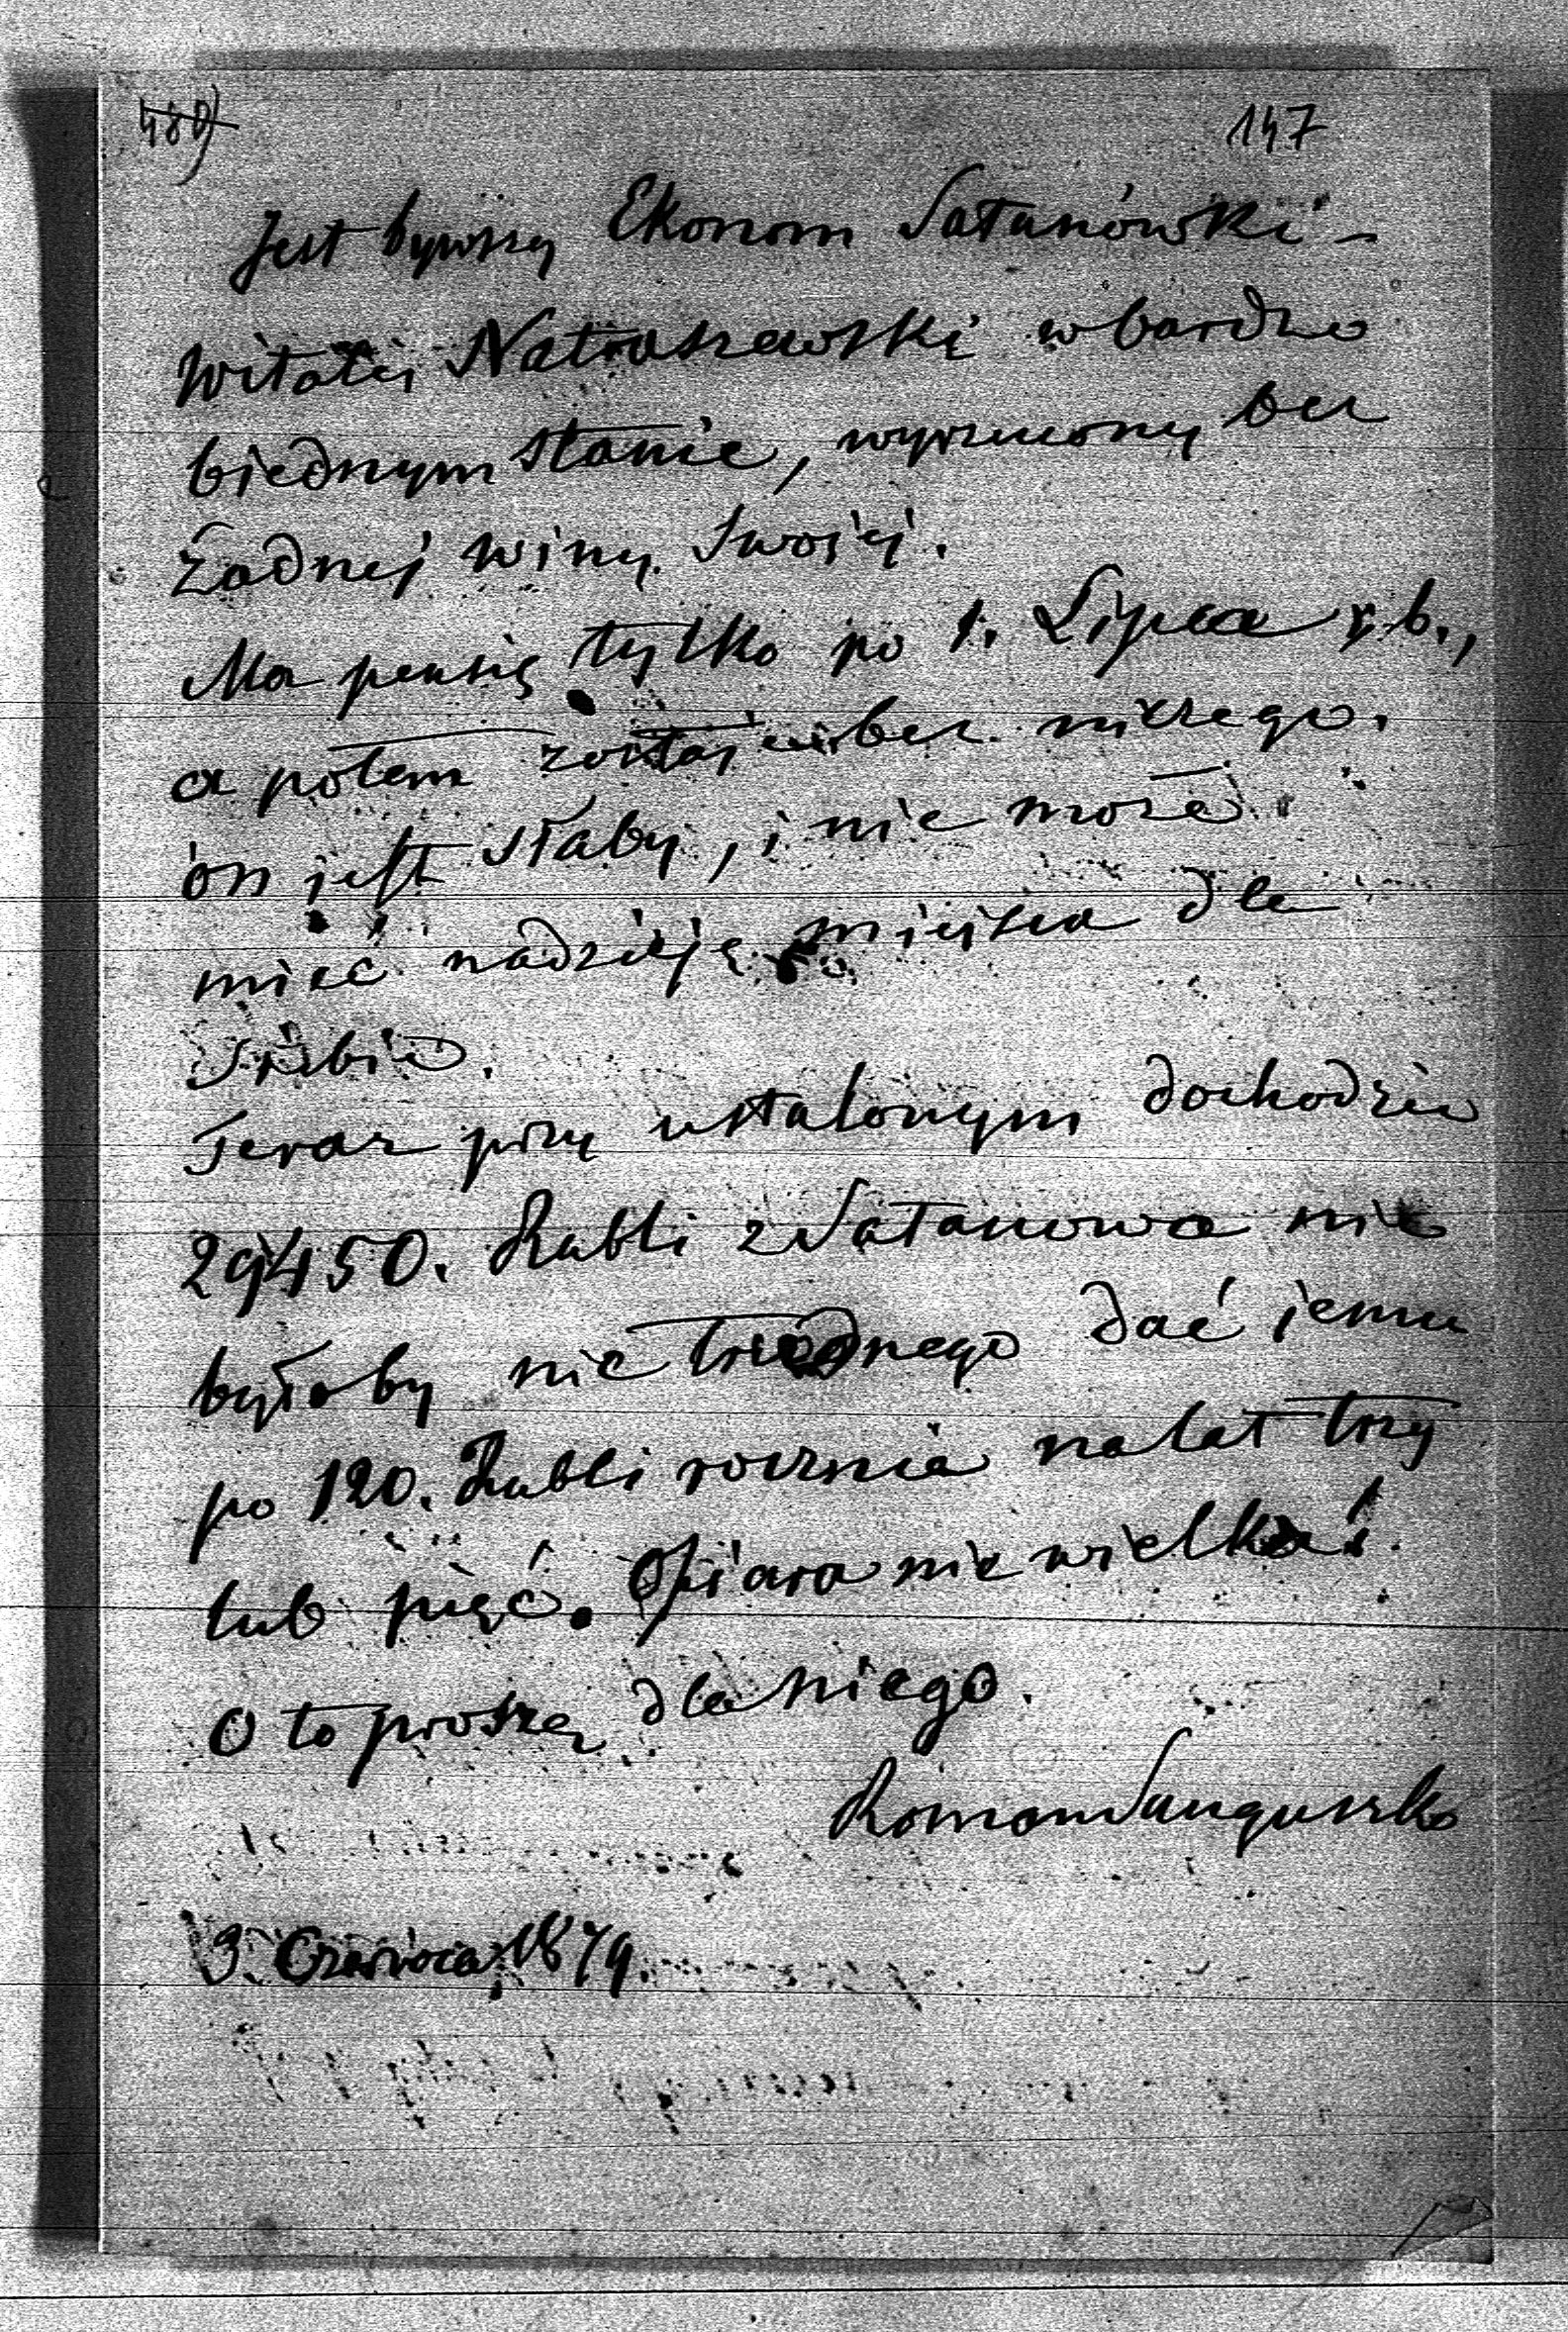 480) 147
Jest bywszy Ekonom Satanówski –
Witalij Natraszewski w bardzo
biednym stanie, wyrzucony bez
Żadnej winy Swojej.
Ma pensię tylko po 1. Lipca r. b.,
a potem zostaje bez niczego.
ón jest słaby, i nie może
mieć nadzieję miejsca dla
Siebie.
Teraz przy ustalonym dochodzie
29450. Rubli z Satanowa nic
byłoby nie trudnego dać jemu
po 120. Rubli rocznie na lat trzy
lub pięć. Ofiara nie wielka!
O to proszę dla niego.
Roman Sanguszko
3. Czerwca 1879.